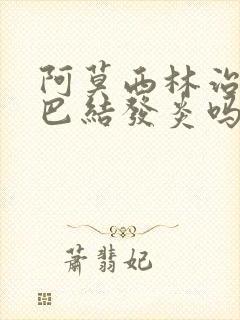 阿莫西林治
巴結發炎吗
蕭翡妃